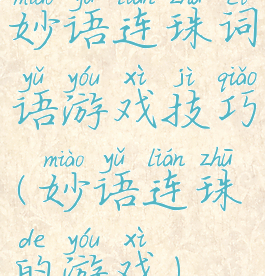 miào yǔ lián zhū cí
妙语连珠词
yǔ yóu xì jì qiǎo
语游戏技巧
miào yǔ lián zhū
(妙语连珠
de yóu xì
的游戏)